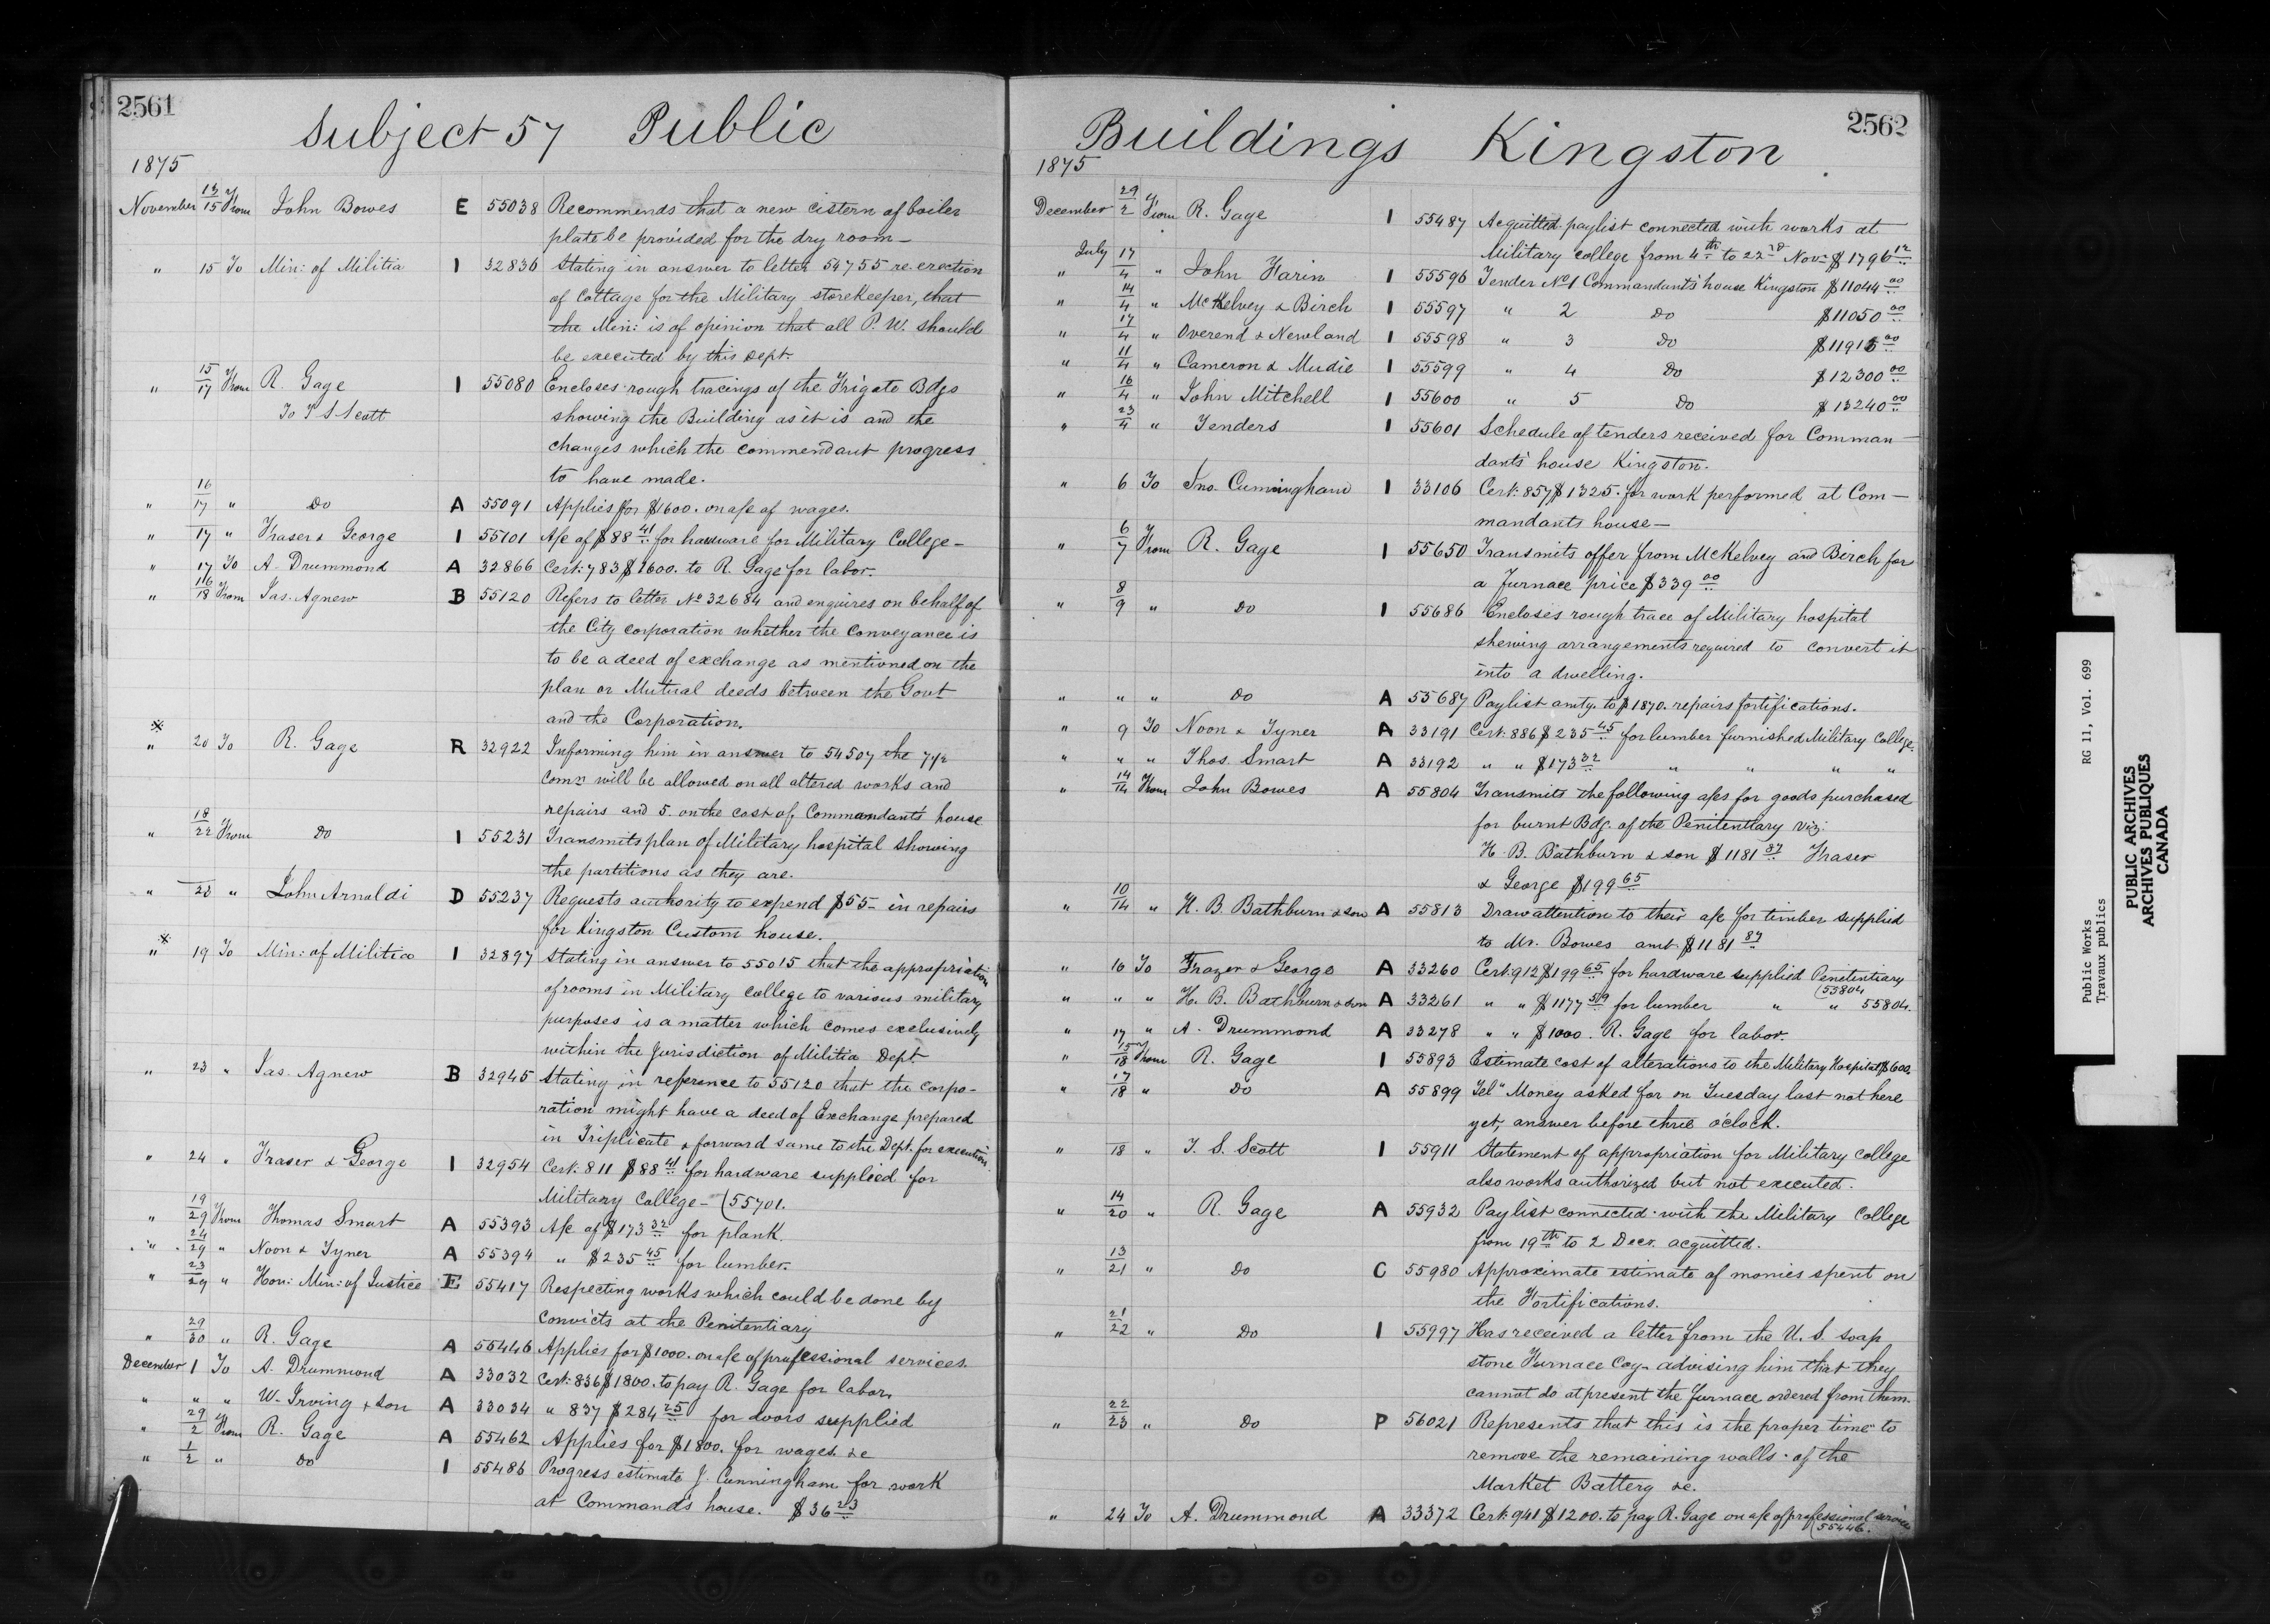 2561
Subject 57 Public
1875
November 13/15 From John Bowes E 55038 Recommends that a new cistern of boiler
plate be provided for the dry room —
" 15 To Min: of Militia I 32836 Stating in answer to letter 54755 re erection
of Cottage for the Military storekeeper, that
the Min: is of opinion that all P. W. should
be executed by this Dept.
" 15/17 From R. Gage I 55080 Encloses rough tracings of the Frigate Bdgs
To T S Scott showing the Building as it is and the
changes which the commendant progress
to have made.
" 16/17 " Do A 55091 Applies for $1600. on a/c of wages.
" 17 " Fraser & George I 55101 A/c of $88 41 for hardware for Military College —
" 17 To A. Drummond A 32866 Cert: 783 $1600. to R. Gage for labor.
" 16/18 From Jas. Agnew B 55120 Refers to letter No 32684 and enquires on behalf of
the City corporation whether the Conveyance is
to be a deed of exchange as mentioned on the
plan or Mutual deeds between the Govt
and the Corporation.
※
" 20 To R. Gage R 32922 Informing him in answer to 54507 the 7 1/2
Comn will be allowed on all altered works and
repairs and 5. on the cost of Commandants house
" 18/22 From Do I 55231 Transmits plan of Military hospital showing
the partitions as they are.
" 23 " John Arnoldi D 55237 Requests authority to expend $55 — in repairs
for Kingston Custom house.
※
" 19 To Min: of Militia I 32897 Stating in answer to 55015 that the appropriation
of rooms in Military College to various military
purposes is a matter which comes exclusively
within the Jurisdiction of Militia Dept
" 23 " Jas. Agnew B 32945 Stating in reference to 55120 that the corpo-
ration might have a deed of Exchange prepared
in Triplicate & forward same to the Dept. for execution.
" 24 " Fraser & George I 32954 Cert. 811 $88 41 for hardware supplied for
Military College — (55701.
" 19/29 From Thomas Smart A 55393 A/c of $173 32 for plank.
" 24/29 " Noon & Tyner A 55394 " $235 45 for lumber.
" 23/29 " Hon: Min: of Justice E 55417 Respecting works which could be done by
Convicts at the Penitentiary
" 29/30 " R. Gage A 55446 Applies for $1000. on a/c of professional services.
December 1 To A. Drummond A 33032 Cert: 836 $1800. to pay R. Gage for labor.
" " " W. Irving & son A 33034 " 837 $284 25 for doors supplied
" 29/2 From R. Gage A 55462 Applies for $1800. for wages &c
" 1/2 " Do I 55486 Progress estimate J. Cunningham for work
at Command's house. $36 23
2562
Buildings Kingston
1875
December 29/2 From R. Gage I 55487 Acquitted paylist connected with works at
Military college from 4th to 22nd Nov: $1796 12
July
" 17/4 " John Farin I 55596 Tender No 1 Commandant's house Kingston $11044 00
" 14/4 " McKelvey & Birch I 55597 " 2 Do $11050 00
" 17/4 " Overend & Newland I 55598 " 3 Do $11915 00
" 11/4 " Cameron & Mudie I 55599 " 4 Do $12300 00
" 16/4 " John Mitchell I 55600 " 5 Do $13240 00
" 23/4 " Tenders I 55601 Schedule of tenders received for Comman—
dants' house Kingston.
" 6 To Jno. Cunningham I 33106 Cert: 857 $1325. for work performed at Com—
mandants house —
" 6/7 From R. Gage I 55650 Transmits offer from McKelvey and Birch for
a Furnace price $339 00
" 8/9 " Do I 55686 Encloses rough trace of Military hospital
shewing arrangements required to convert it
into a dwelling.
" " " Do A 55687 Paylist amtg. to $1870. repairs fortifications.
" 9 To Noon & Tyner A 33191 Cert: 886 $235 45 for lumber furnished Military College.
" " " Thos. Smart A 33192 " " $173 32 " " " "
" 14/14 From John Bowes A 55804 Transmits the following a/cs for goods purchased
for burnt Bdg. of the Penitentiary viz:
H. B. Bathburn & son $1181 87 Fraser
& George $199 65
" 10/14 " H. B. Bathburn & son A 55813 Draw attention to their a/c for timber supplied
to Mr. Bowes amt $1181 87
" 16 To Frazer & George A 33260 Cert: 912 $199 65 for hardware supplied Penitentiary
(55804
" " " H. B. Bathburn & son A 33261 " " $1177 59 for lumber " " 55804.
" 17 " A. Drummond A 33278 " " $1000. R. Gage for labor.
" 15/18 From R. Gage I 55893 Estimate cost of alterations to the Military Hospital $600.
" 17/18 " Do A 55899 Tel" Money asked for on Tuesday last not here
yet, answer before three o'clock.
" 18 " T. S. Scott I 55911 Statement of appropriation for Military College
also works authorized but not executed.
" 14/20 " R. Gage A 55932 Paylist connected with the Military College
from 19th to 2 Decr. acquitted.
" 13/21 " Do C 55980 Approximate estimate of monies spent on
the Fortifications.
" 21/22 " Do I 55997 Has received a letter from the U. S. soap
stone Furnace Coy — advising him that they
cannot do at present the furnace ordered from them.
" 22/23 " Do P 56021 Represents that this is the proper time to
remove the remaining walls of the
Market Battery &c.
" 24 To A. Drummond A 33372 Cert: 941 $1200. to pay R. Gage on a/c of professional services
(55446.
Public Works RG 11, Vol. 699
Travaux publics
PUBLIC ARCHIVES
ARCHIVES PUBLIQUES
CANADA